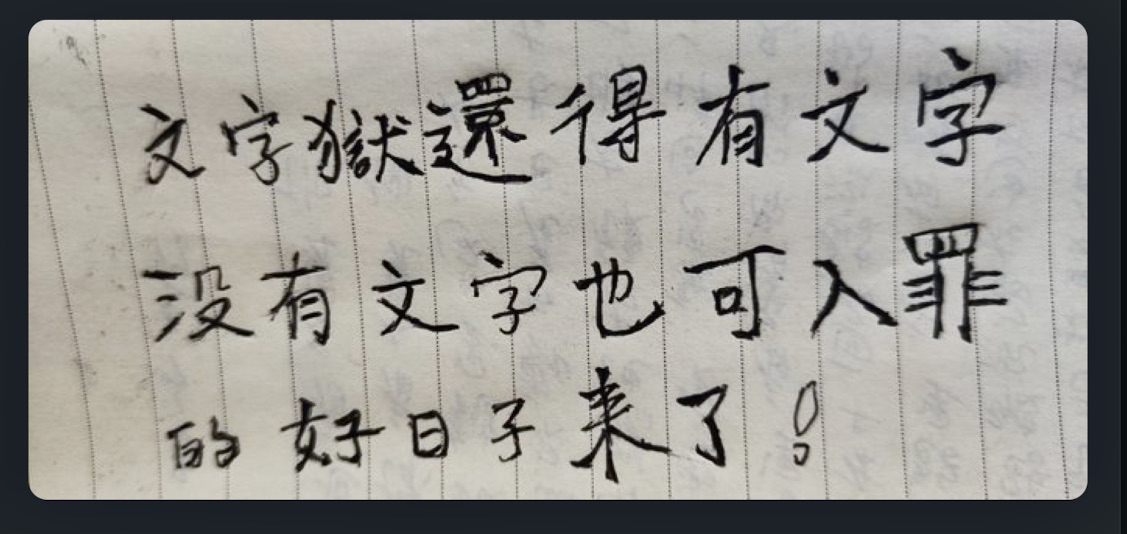 文字獄還得有文字
没有文字也可入罪
的好日子来了!